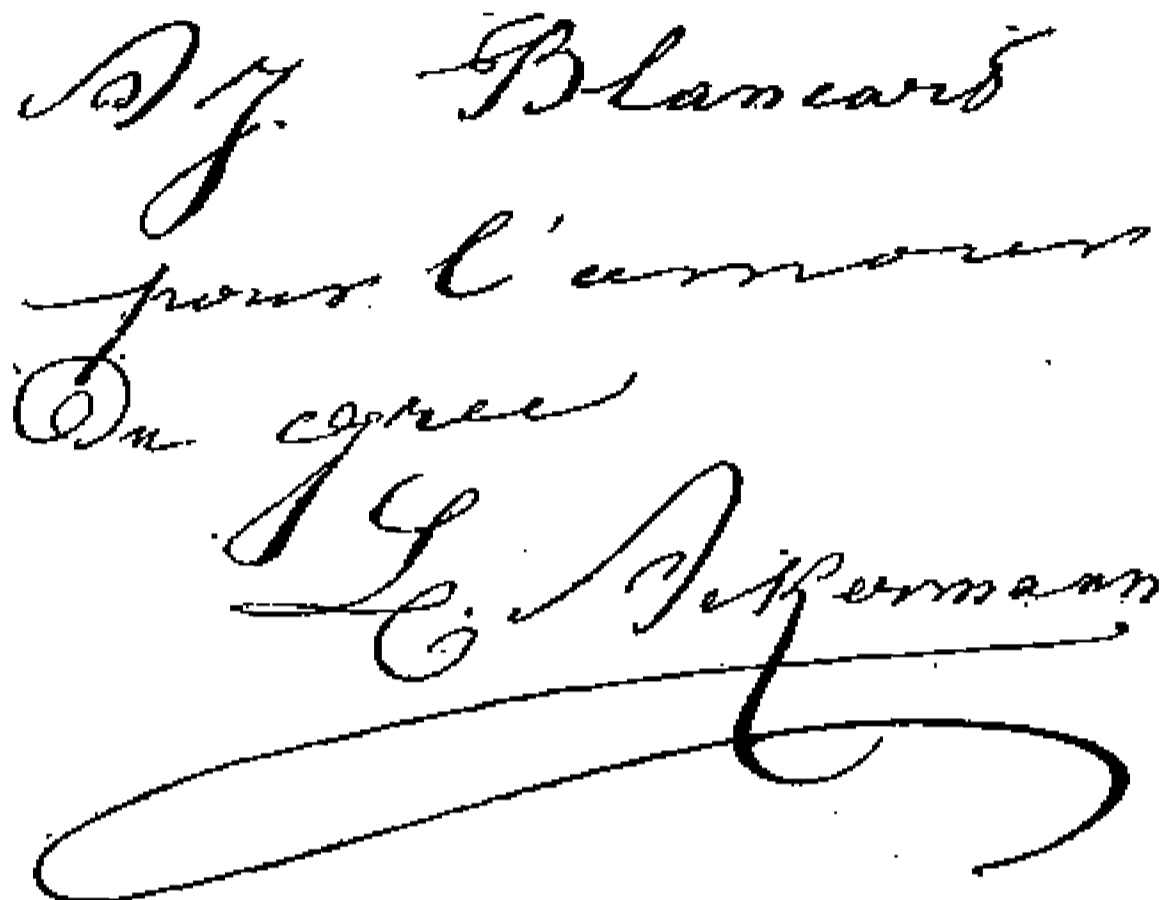 A J. Blancard
pour l'amour
Du grec
L. Ackermann